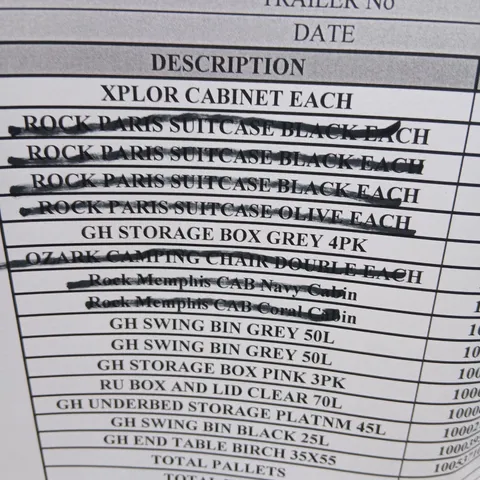 TRAILER No
DATE
DESCRIPTION
XPLOR CABINET EACH
ROCK PARIS SUITCASE BLACK EACH
ROCK PARIS SUITCASE BLACK EACH
ROCK PARIS SUITCASE BLACK EACH
ROCK PARIS SUITCASE OLIVE EACH
GH STORAGE BOX GREY 4PK
OZARK CAMPING CHAIR DOUBLE EACH
Rock Memphis CAB Navy Cabin
Rock Memphis CAB Coral Cabin
GH SWING BIN GREY 50L
GH SWING BIN GREY 50L
GH STORAGE BOX PINK 3PK
RU BOX AND LID CLEAR 70L
GH UNDERBED STORAGE PLATNM 45L
GH SWING BIN BLACK 25L
GH END TABLE BIRCH 35X55
TOTAL PALLETS